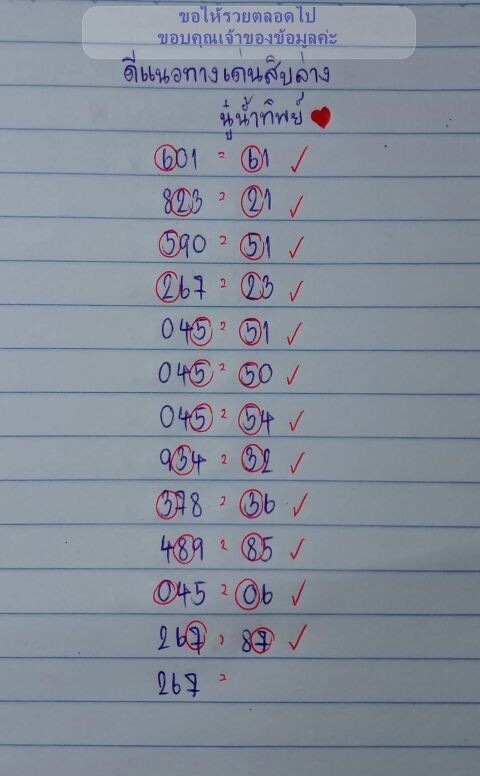 ขอให้รวยตลอดไป
ขอบคุณเจ้าของข้อมูลค่ะ
ดีแนวทางเด่นสิบล่าง
นู๋น้ำทิพย์
601 = 61 ✓
823 = 21 ✓
590 = 51 ✓
267 = 23 ✓
045 = 51 ✓
045 = 50 ✓
045 = 54 ✓
934 = 32 ✓
378 = 36 ✓
489 = 85 ✓
045 = 06 ✓
267 = 87 ✓
267 =